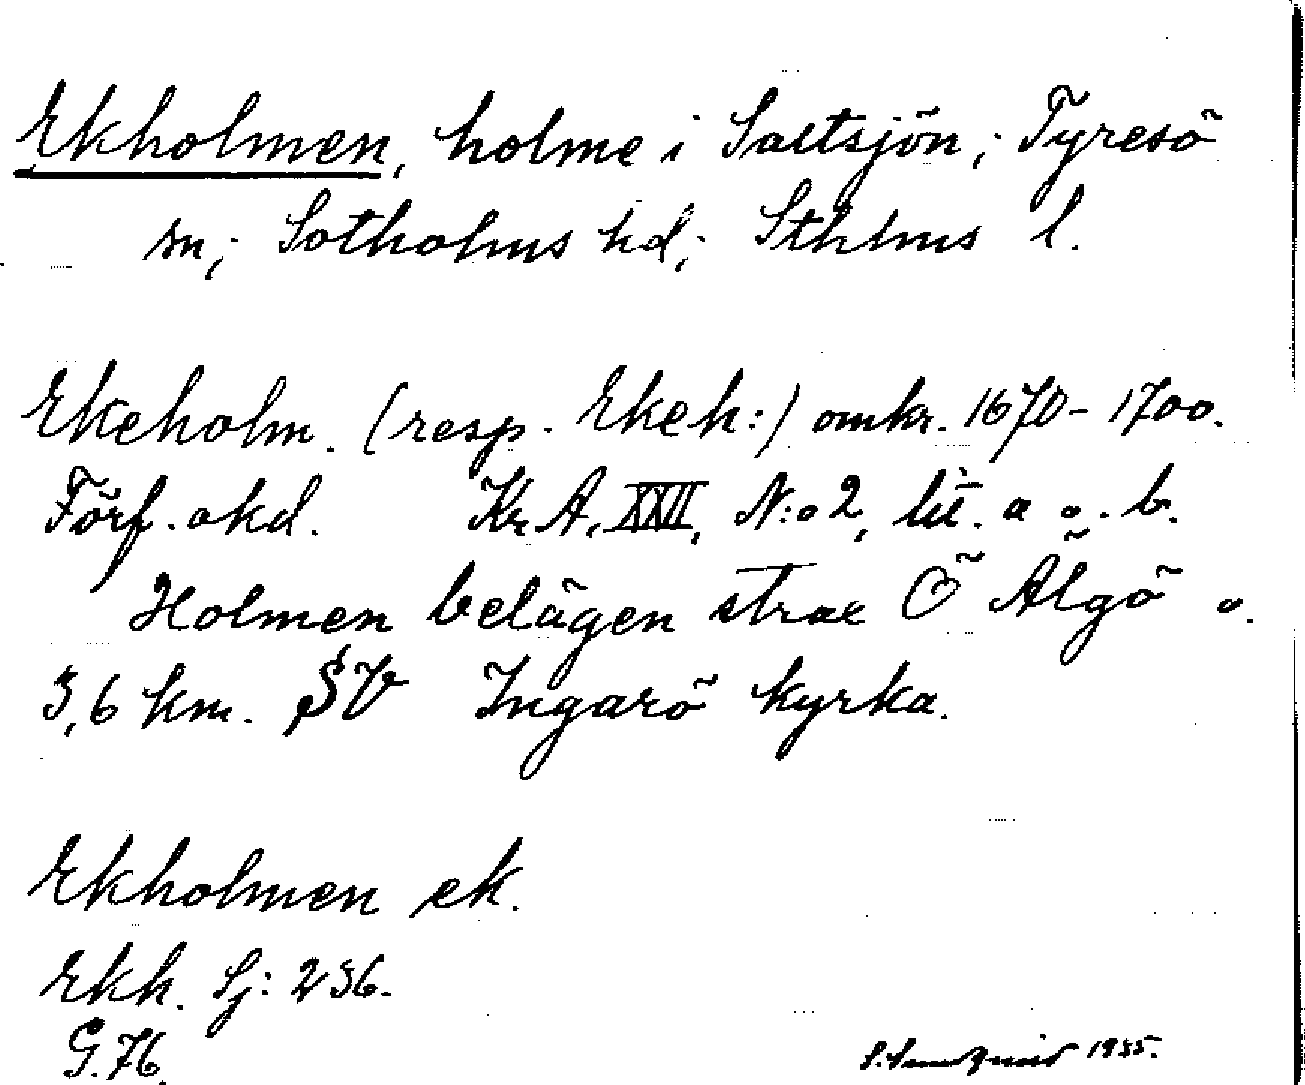 Ekholmen, holme i Saltsjön; Tyresö
sn; Sotholms hd; Sthlms l.
Ekeholm. (resp. Ekeh:) omkr. 1670-1700.
Förf. okd. Kr.A. XXII, N:o 2, lit. a o. b.
Holmen belägen strax Ö Älgö o.
3,6 km. SV Ingarö kyrka.
Ekholmen ek.
Ekh. Sj: 236.
G.76.
1935.